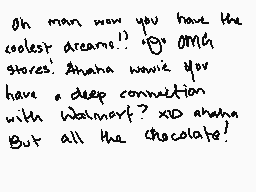 Oh man wow you have the
coolest dreams!! "O" OMG
stores! Ahaha wowie you
have a deep connection
with Walmart? XD ahaha
But all the chocolate!